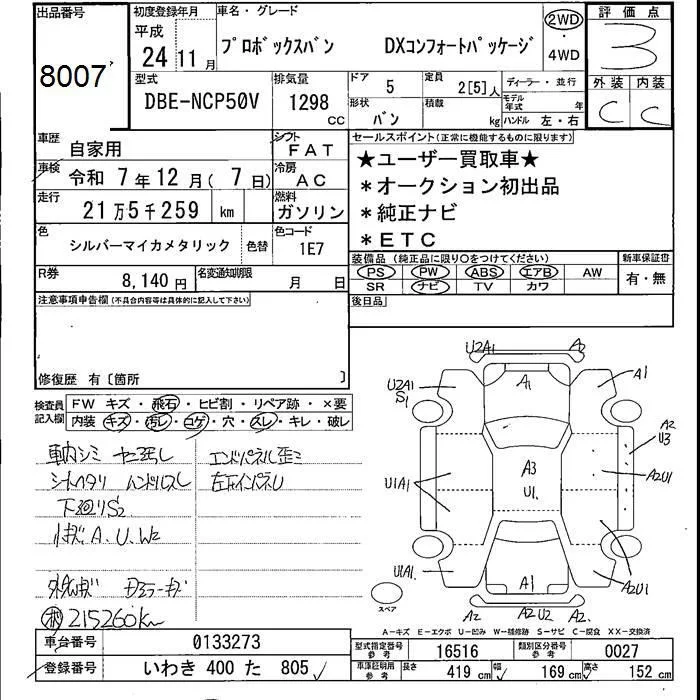 出品番号
8007
初度登録年月
平成
24年11月
車名・グレード
プロボックスバン DXコンフォートパッケージ
2WD
・
4WD
評価点
3
型式
DBE-NCP50V
排気量
1298 CC
ドア
5
定員
2[5]人
形状
バン
積載
kg
ディーラー・並行
モデル年式 年
ハンドル 左・右
外装 内装
C C
車歴
自家用
シフト
FAT
車検
令和 7年12月(7日)
冷房
AC
走行
21万5千259 km
燃料
ガソリン
色
シルバーマイカメタリック
色替
色コード
1E7
R券
8,140円
名変通知期限
月 日
セールスポイント(正常に機能するものに限ります)
★ユーザー買取車★
*オークション初出品
*純正ナビ
*ETC
装備品(純正品に限り○をつけてください)
新車保証書
PS PW ABS エアB AW
有・無
SR ナビ TV カワ
後日品
注意事項申告欄(不具合内容等は具体的に記入して下さい)
修復歴 有〔箇所 〕
検査員記入欄
FW キズ・飛石・ヒビ割・リペア跡・×要
内装 キズ・汚レ・コゲ・穴・スレ・キレ・破レ
車内シミ
エンドパネル歪ミ
シートヘタリ ハンドルスレ
下廻りS2
小キズA.U.W2
215260km
U2A1 A2
U2A1 S1
A1
A1
A2 U3
A3
U1
U1A1
A2U1
U1A1
A1
A2U1
A2 A2U2 A2
スペア
A-キズ E-エクボ U-凹み W-補修跡 S-サビ C-腐食 XX-交換済
車台番号
0133273
登録番号
いわき 400 た 805
型式指定番号 参考
16516
類別区分番号 参考
0027
車庫証明用 参考
長さ 419 cm 幅 169 cm 高さ 152 cm